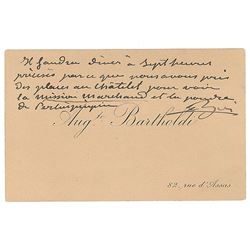 Il faudra dîner à Sept heures
précises parce que nous avons pris
des places au Châtelet pour voir
la mission Marchand et la poudre
de Perlinpinpin
Aug.te Bartholdi
82, rue d'Assas